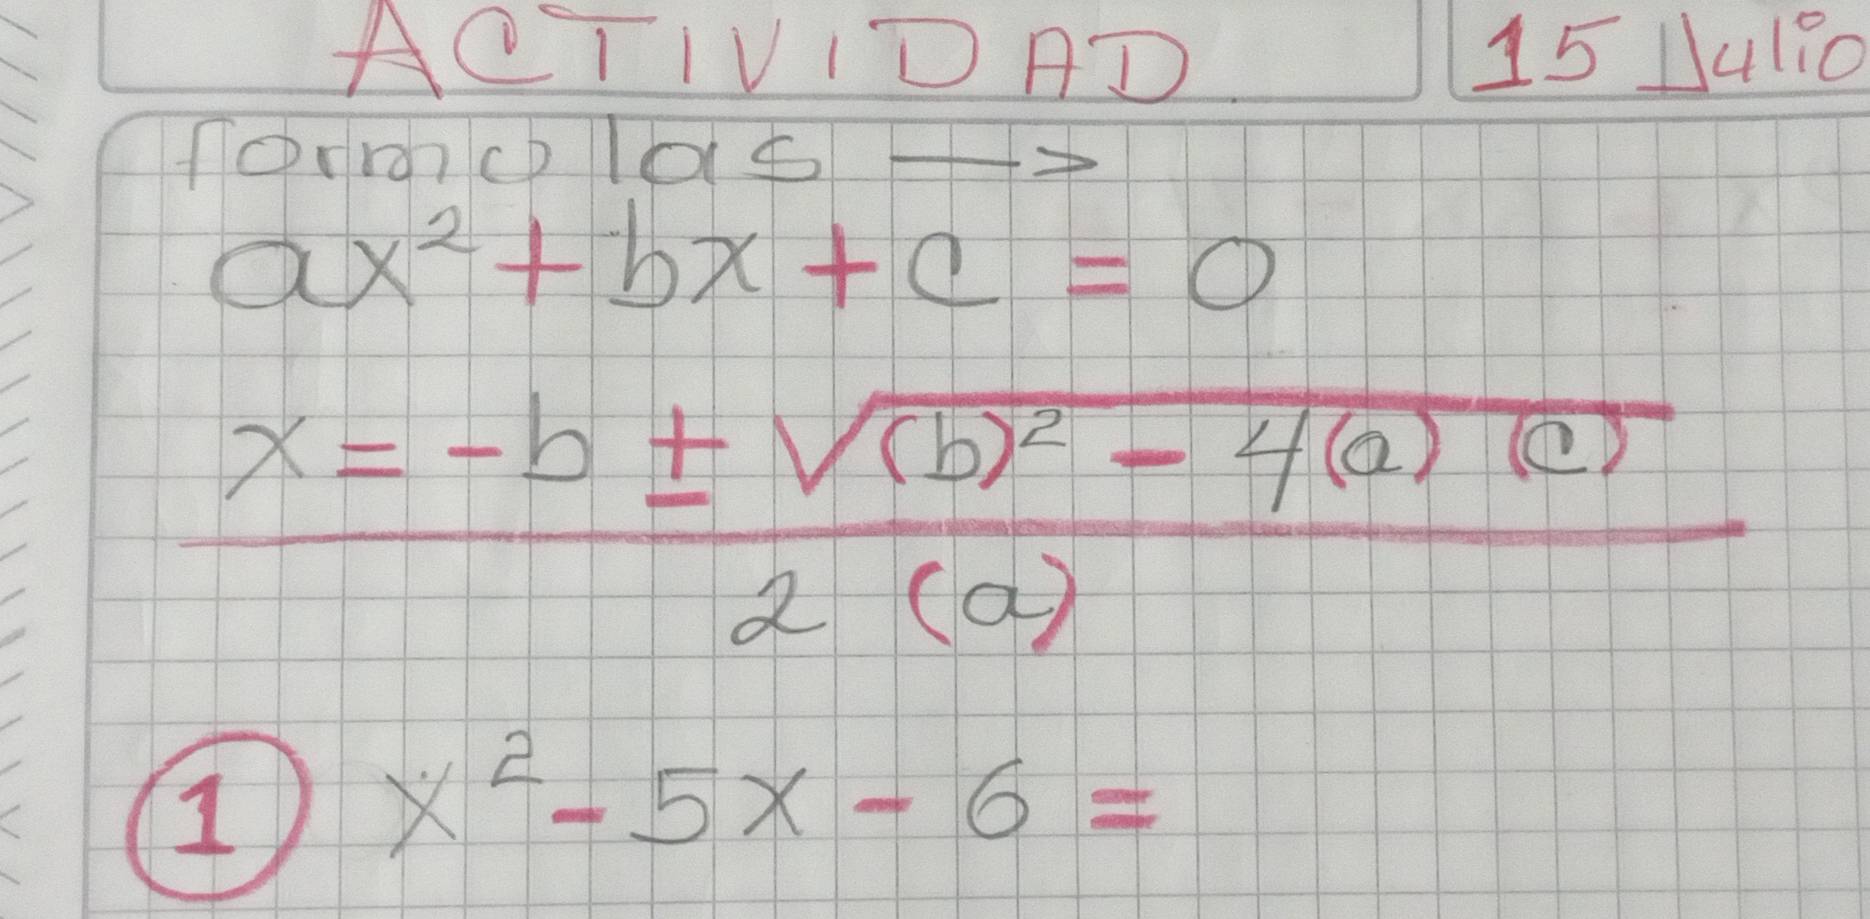 ACTIVIDAD
15 Julio
formulas —>
ax² + bx + c = 0
x = - b ± √(b)² - 4(a) (c)
2 (a)
1 x² - 5x - 6 =